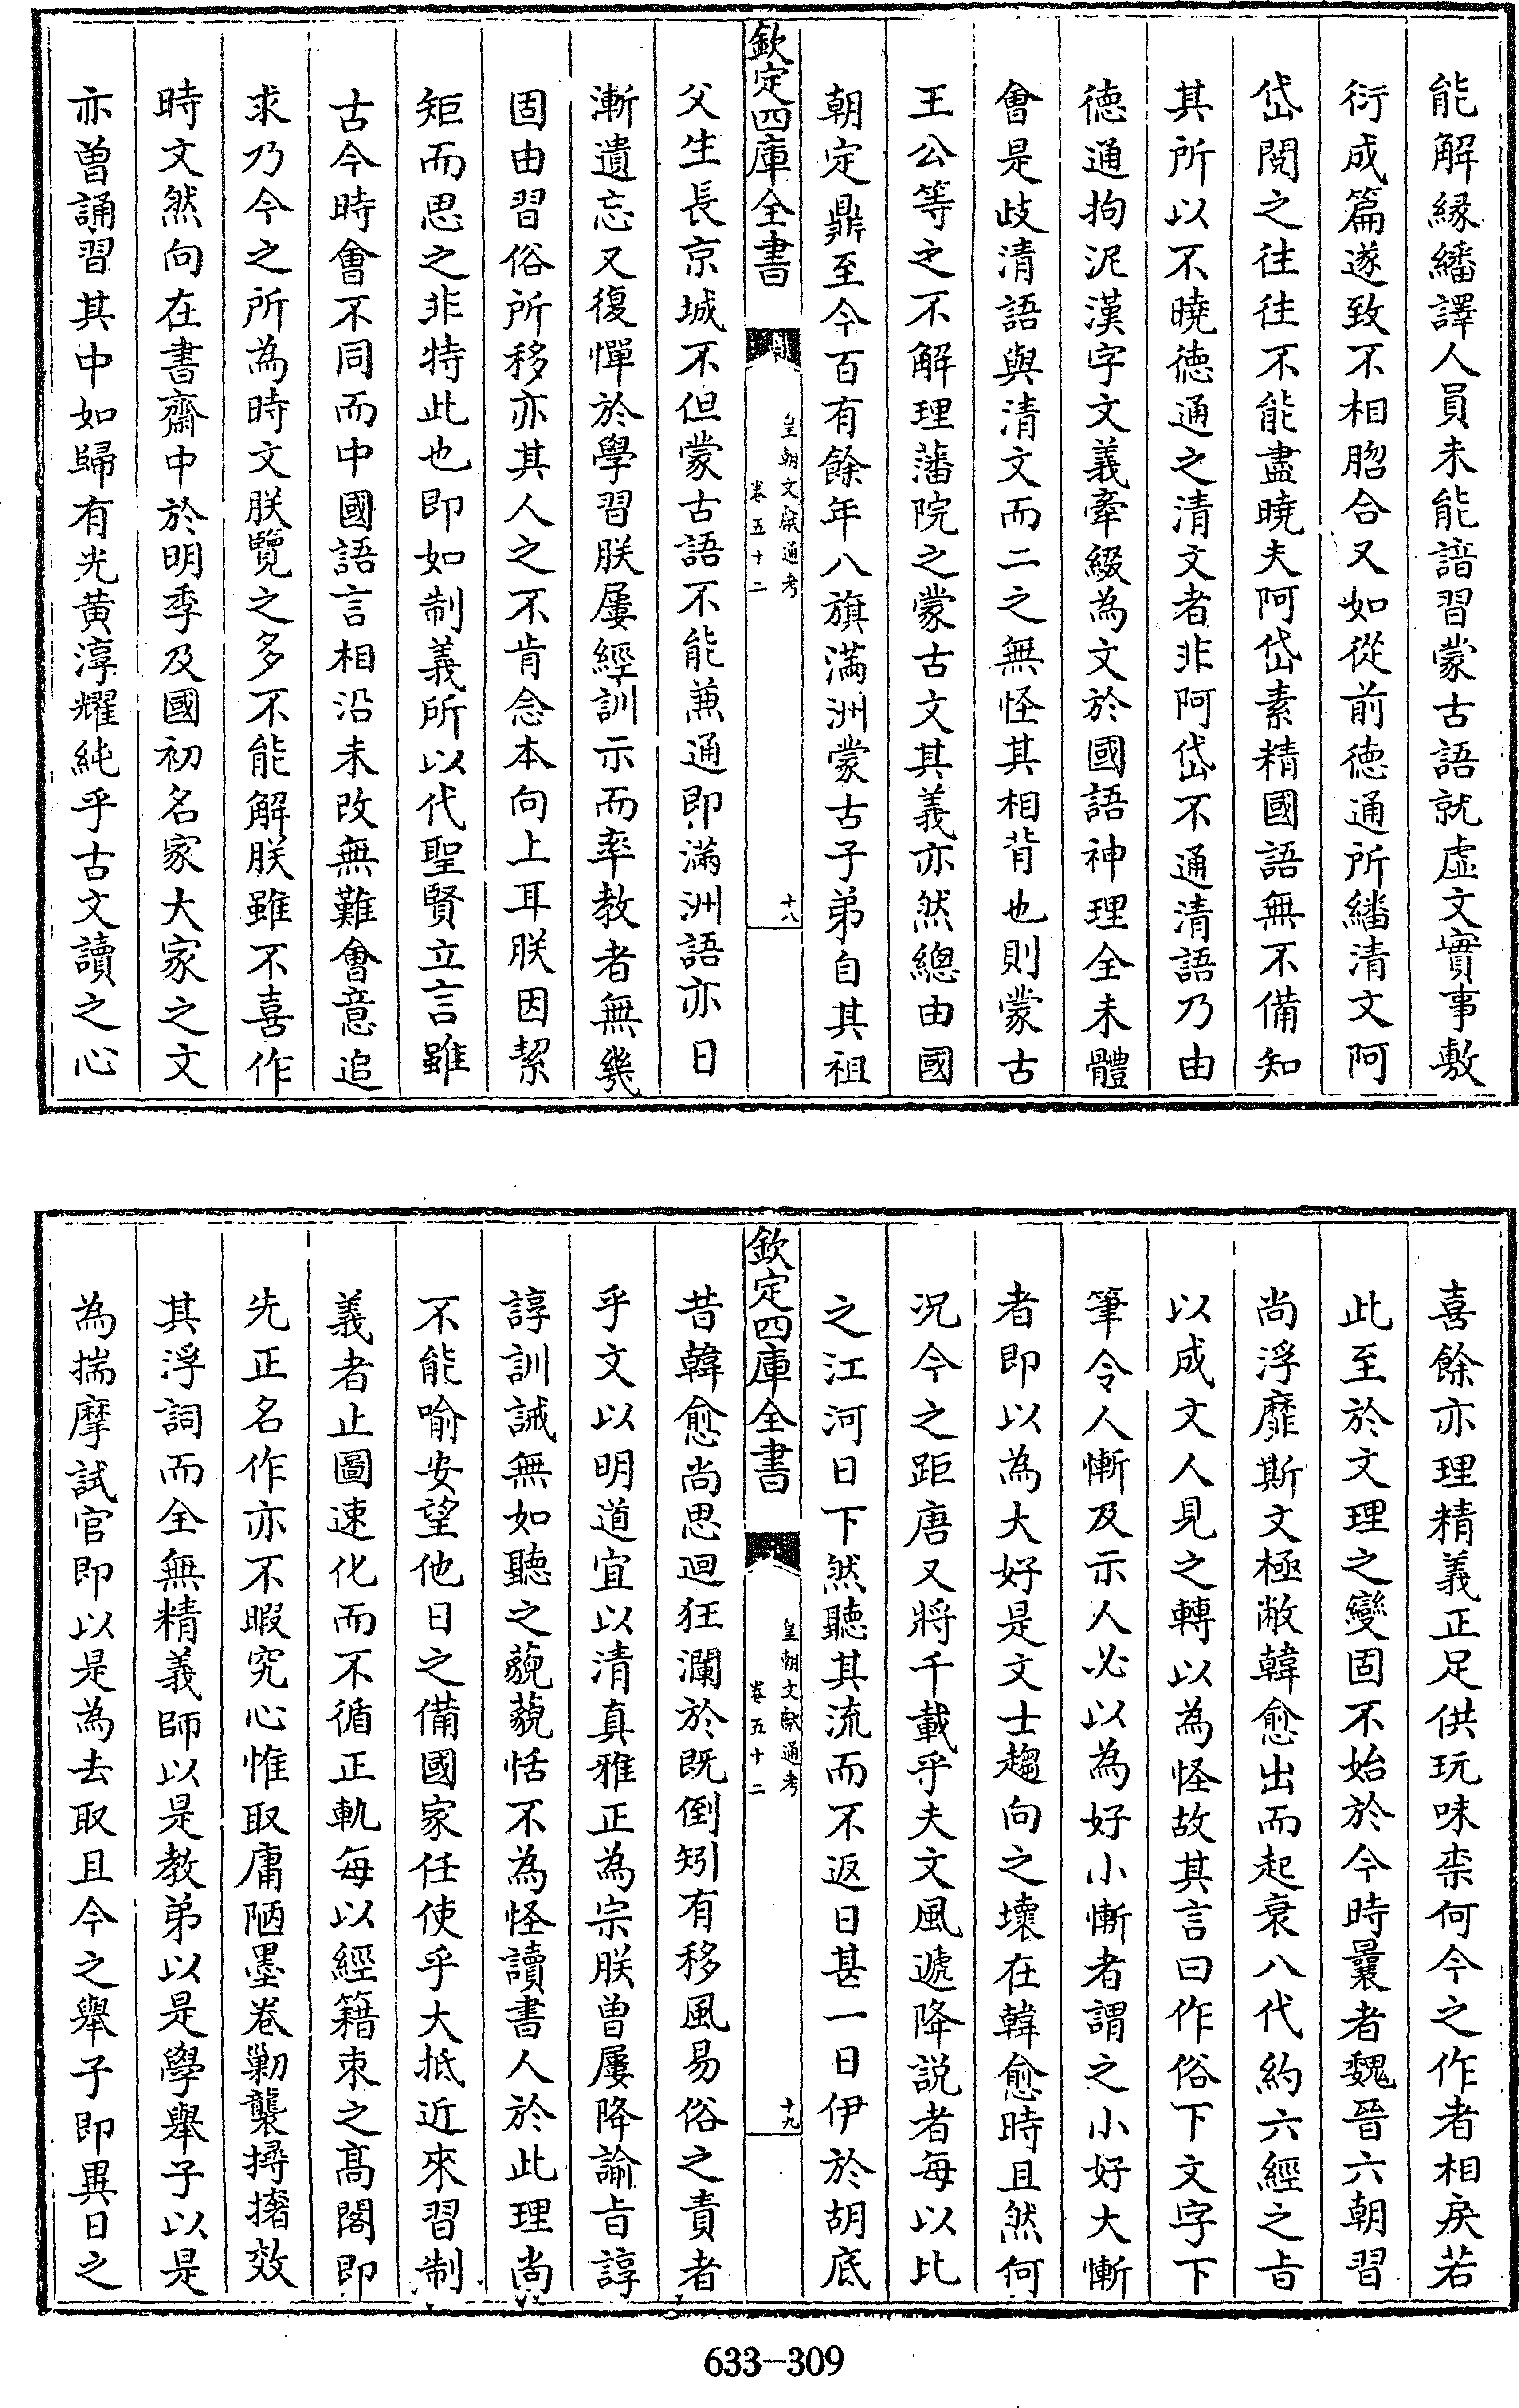 能解縁繙譯人員未能諳習蒙古語就虚文實事敷
衍成篇遂致不相脗合又如從前徳通所繙清文阿
岱閱之往往不能盡曉夫阿岱素精國語無不備知
其所以不曉徳通之清文者非阿岱不通清語乃由
徳通拘泥漢字文義牽綴為文於國語神理全未體
會是歧清語與清文而二之無怪其相背也則蒙古
王公等之不解理藩院之蒙古文其義亦然總由國
朝定鼎至今百有餘年八旗滿洲蒙古子弟自其祖
欽定四庫全書
皇朝文獻通考
卷五十二
十八
父生長京城不但蒙古語不能兼通即滿洲語亦日
漸遺忘又復憚於學習朕屢經訓示而率教者無幾
固由習俗所移亦其人之不肯念本向上耳朕因絜
矩而思之非特此也即如制義所以代聖賢立言雖
古今時會不同而中國語言相沿未改無難會意追
求乃今之所為時文朕覽之多不能解朕雖不喜作
時文然向在書齋中於明季及國初名家大家之文
亦曽誦習其中如歸有光黄淳耀純乎古文讀之心
喜餘亦理精義正足供玩味柰何今之作者相戾若
此至於文理之變固不始於今時曩者魏晉六朝習
尚浮靡斯文極敝韓愈出而起衰八代約六經之㫖
以成文人見之轉以為怪故其言曰作俗下文字下
筆令人慚及示人必以為好小慚者謂之小好大慚
者即以為大好是文士趨向之壞在韓愈時且然何
况今之距唐又將千載乎夫文風遞降説者每以比
之江河日下然聽其流而不返日甚一日伊於胡底
欽定四庫全書
皇朝文獻通考
卷五十二
十九
昔韓愈尚思迴狂瀾於既倒矧有移風易俗之責者
乎文以明道宜以清真雅正為宗朕曽屢降諭㫖諄
諄訓誡無如聽之藐藐恬不為怪讀書人於此理尚
不能喻安望他日之備國家任使乎大抵近來習制
義者止圖速化而不循正軌每以經籍束之髙閣即
先正名作亦不暇究心惟取庸陋墨卷勦襲撏撦效
其浮詞而全無精義師以是教弟以是學舉子以是
為揣摩試官即以是為去取且今之舉子即異日之
633-309